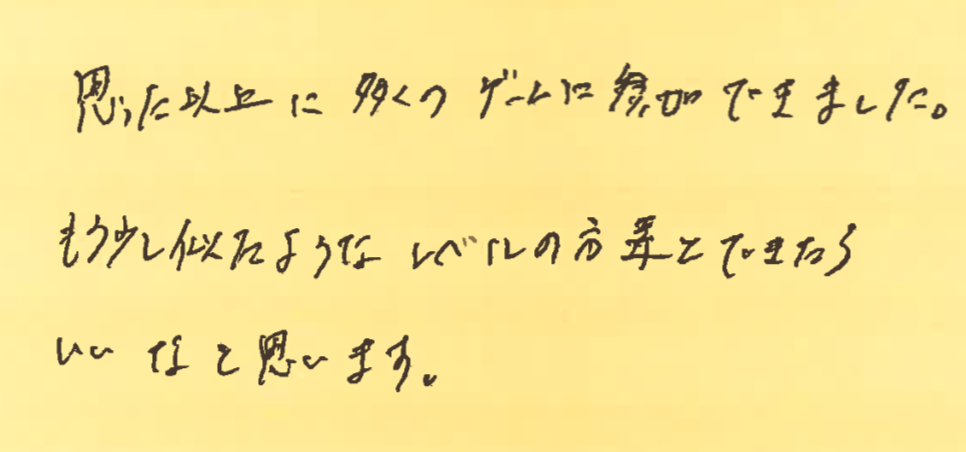 思った以上に多くのゲームに参加できました。
もう少し似たようなレベルの方達とできたら
いいなと思います。